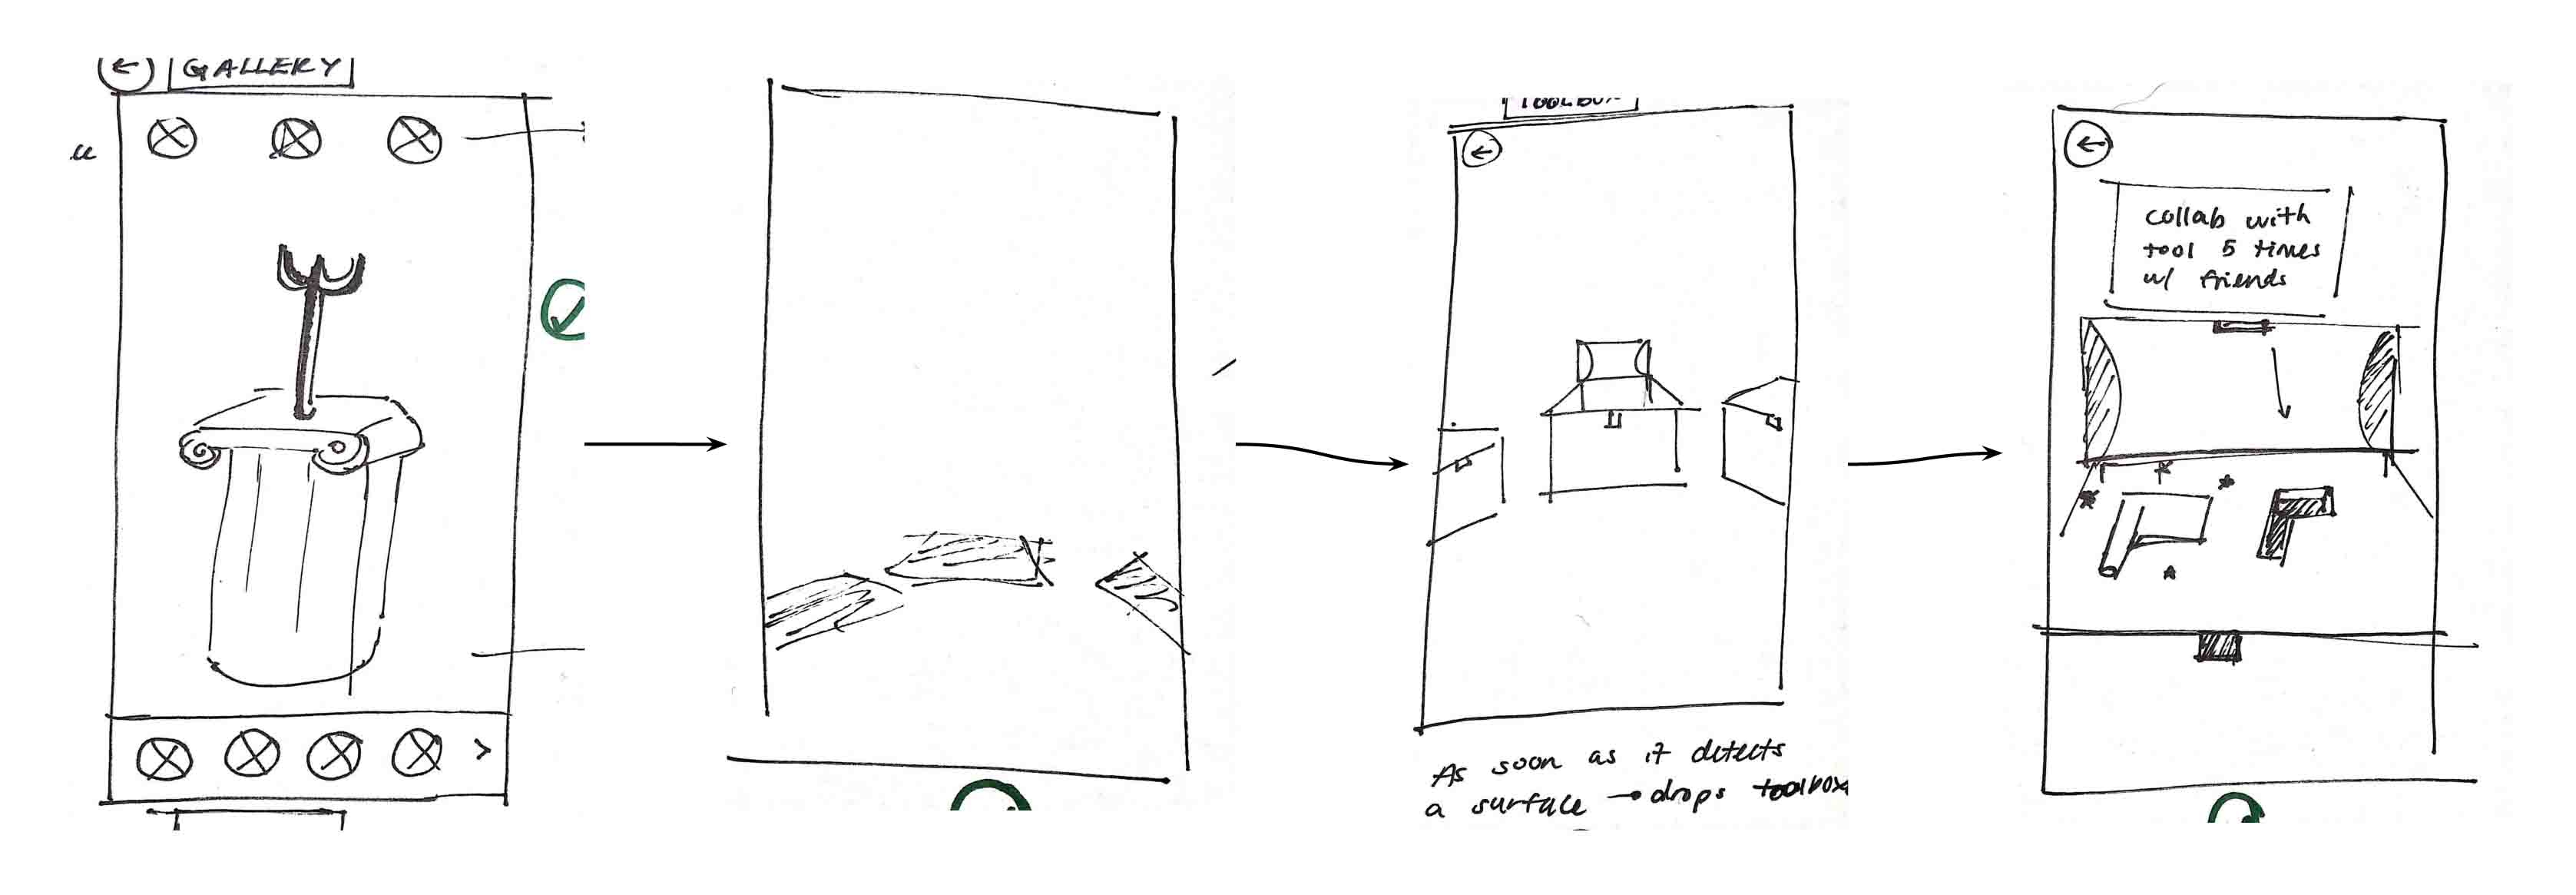 GALLERY
TOOLBOX
As soon as it detects
a surface → drops toolbox
collab with
tool 5 times
w/ friends